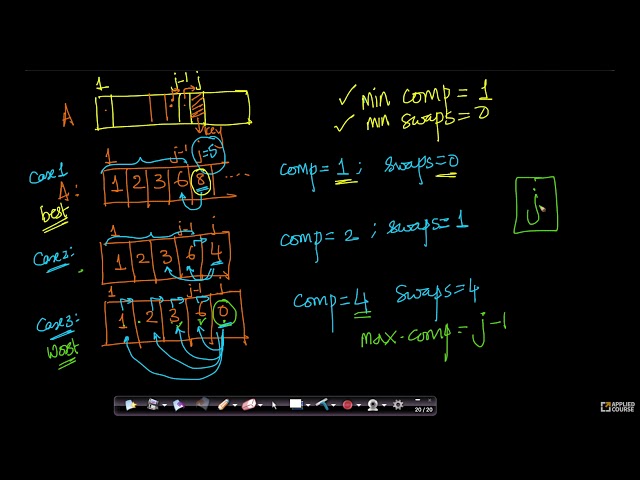 1 j-1 j
A
key
min comp = 1
min swaps = 0
Case1
1 j-1 j=5
A: 1 2 3 6 8 ....
best
comp = 1 ; swaps = 0
j
Case2:
j-1 j
1 2 3 6 4
comp = 2 ; swaps = 1
Case3:
1 j-1 j
1 2 3 6 0
Worst
comp = 4 swaps = 4
max-comp = j-1
20 / 20
APPLIED
COURSE